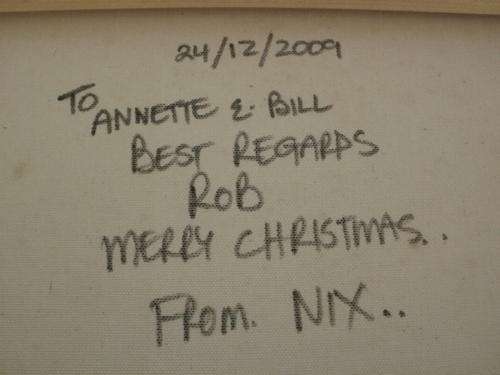 24/12/2009
To ANNETTE & BILL
BEST REGARDS
ROB
MERRY CHRISTMAS..
FROM. NIX..